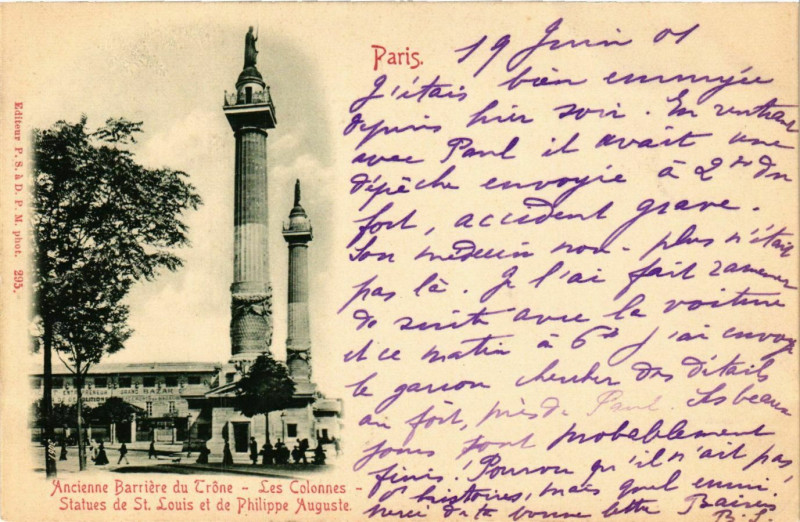 Paris.
19 Juin 01
J'étais bien ennuyée
depuis hier soir. En rentrant
avec Paul il avait une
dépêche envoyée à 2hs du
fort, accident grave.
Son médecin non-plus n'était
pas là. Je l'ai fait ramener
de suite avec la voiture
et ce matin à 6hs j'ai envoyé
le garcon chercher des détails
au fort, près de Paul. Les beaux
jours sont probablement
finis. Pourvu qu'il n'ait pas
d'histoires, mais quel ennui.
Merci de ta bonne lettre Baisers
Editeur P. S. à D. P. M. phot. 295.
GRAND BAZAR
Ancienne Barrière du Trône - Les Colonnes -
Statues de St. Louis et de Philippe Auguste.